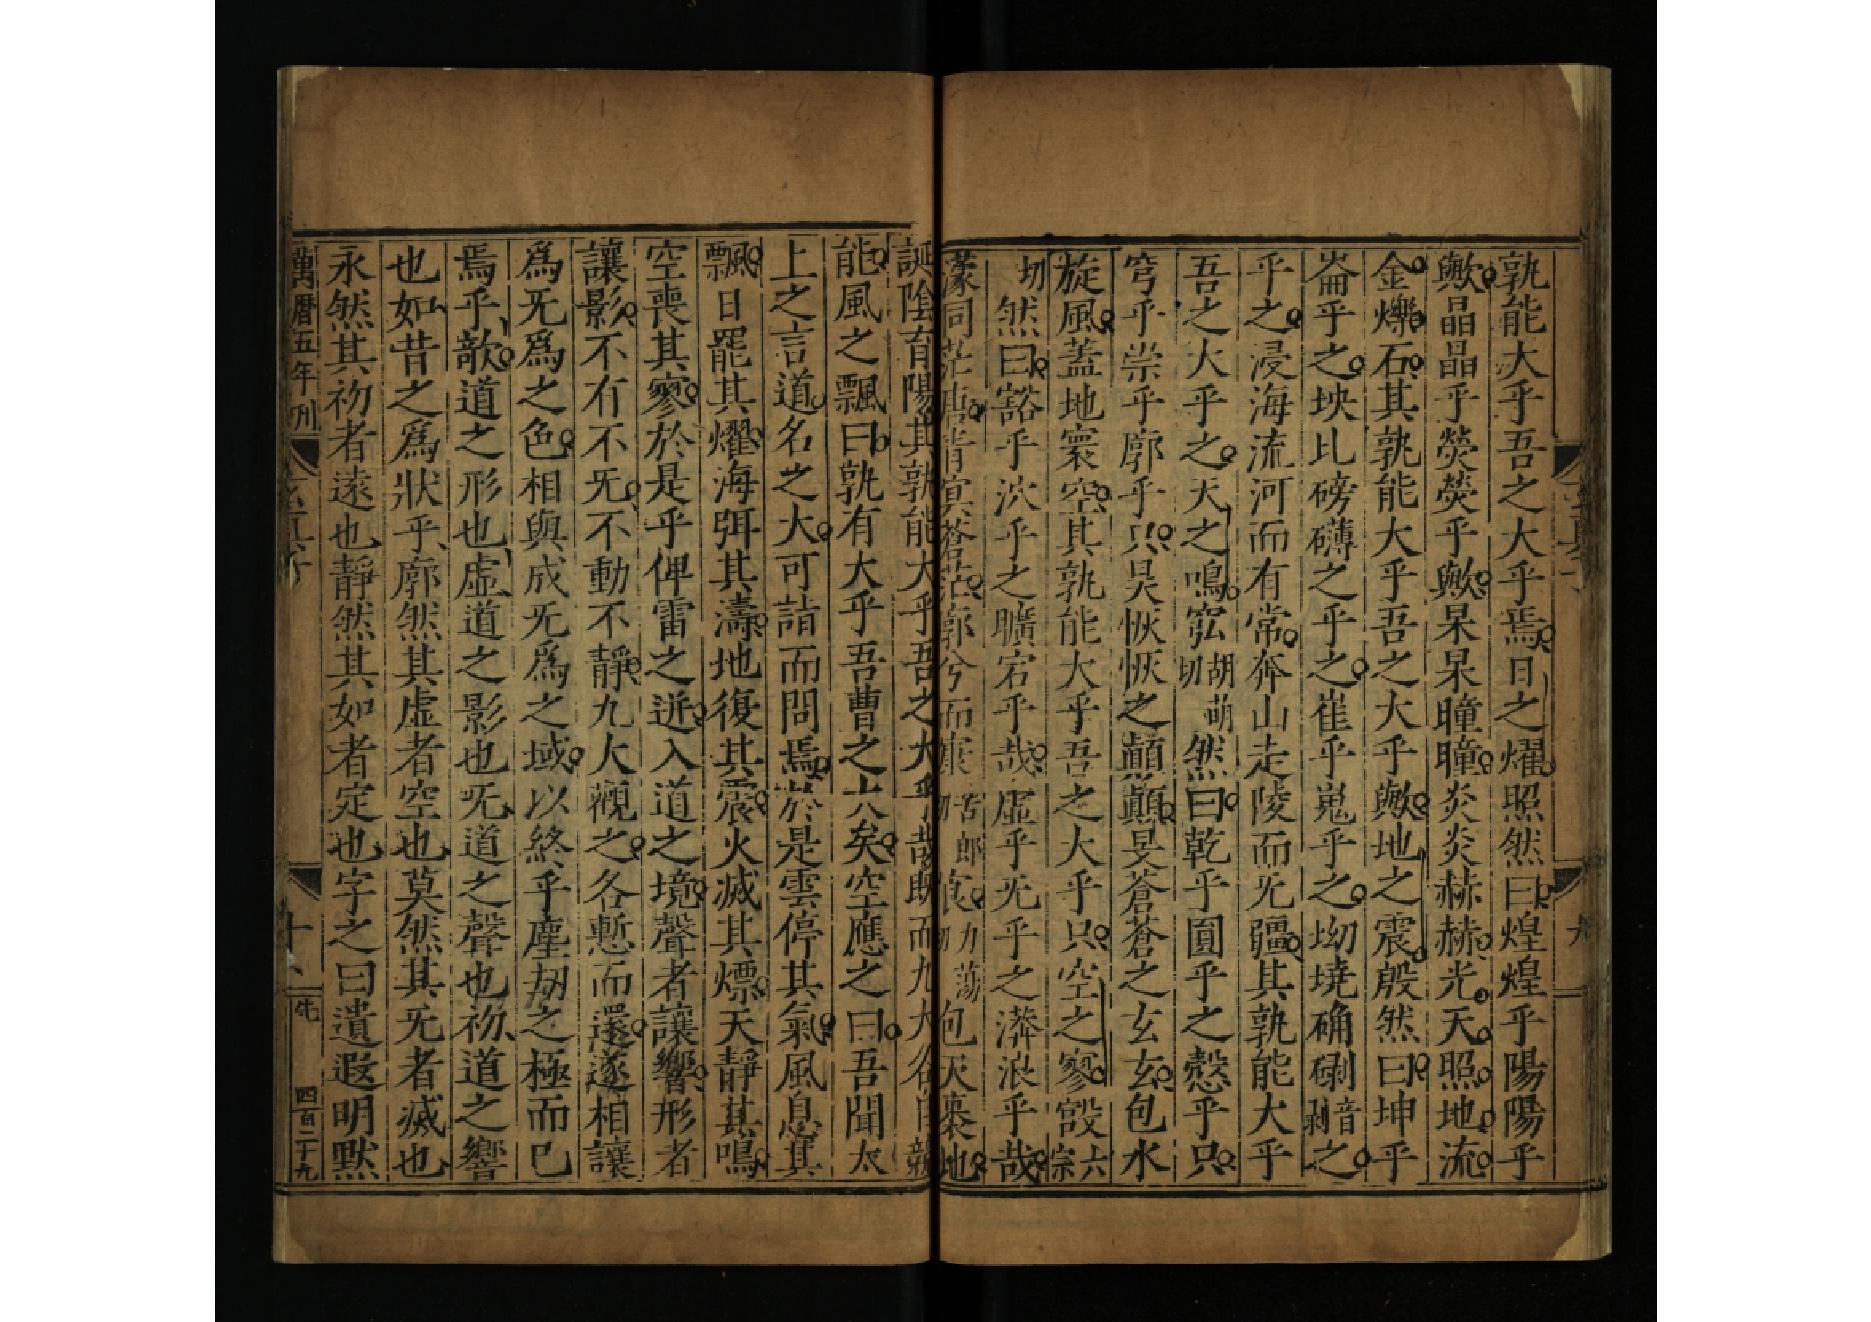 孰能大乎吾之大乎焉日之燿照然曰煌煌乎陽陽乎
歟晶晶乎熒熒乎歟杲杲曈曈炎炎赫赫光天照地流
金爍石其孰能大乎吾之大乎歟地之震殷然曰坤乎
崙乎之坱比磅礴之乎之崔乎嵬乎之坳墝确硎音剥之
乎之浸海流河而有常奔山走陵而无疆其孰能大乎
吾之大乎之天之鳴宖胡萌切然曰乾乎圓乎之愨乎只
穹乎崇乎廓乎只昊恢恢之顛顛旻蒼蒼之玄玄包水
旋風蓋地寰空其孰能大乎吾之大乎只空之寥㲉六宗
切然曰豁乎泬乎之曠宕乎哉虛乎无乎之漭浪乎哉
濛同茫唐肯冥蒼茫廓兮而㝩苦郎切㝗力蕩切包天裹地
誕陰育陽其孰能大乎吾之大乎哉既而九大各自競
能風之飄曰孰有大乎吾曹之大矣空應之曰吾聞太
上之言道名之大可詣而問焉於是雲停其氣風息其
飄日罷其燿海弭其濤地復其震火滅其熛天靜其鳴
空喪其寥於是乎俾雷之迸入道之境聲者讓響形者
讓影不有不无不動不靜九大觀之各慙而還遂相讓
爲无爲之色相與成无爲之域以終乎塵劫之極而已
焉乎歊道之形也虛道之影也无道之聲也初道之響
也如昔之爲狀乎廓然其虛者空也莫然其无者滅也
永然其初者遠也靜然其如者定也字之曰遺遐明默
萬曆五年刊
十八
四百二十九